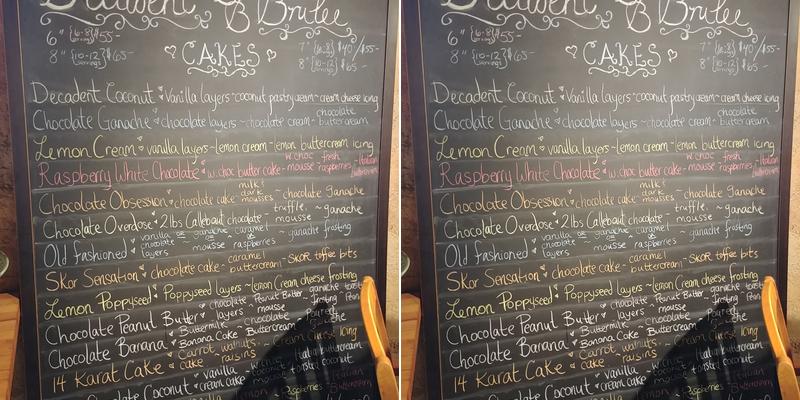 Decadent Brulee
6" {6-8} $55-
8" {10-12} $65-
servings
CAKES
7" {6-8} $40/$55-
8" {10-12} $65-
Decadent Coconut vanilla layers ~ coconut pastry cream ~ cream cheese icing
Chocolate Ganache chocolate layers ~ chocolate cream ~ chocolate buttercream
Lemon Cream vanilla layers ~ lemon cream ~ lemon buttercream icing
Raspberry White Chocolate w.choc butter cake - w.choc mousse fresh raspberries - Italian buttercream
Chocolate Obsession chocolate cake - milk & dark mousse ~ chocolate ganache
Chocolate Overdose 2 lbs Callebaut chocolate - truffle, mousse ~ ganache
Old fashioned vanilla or chocolate layers ganache or mousse caramel or raspberries ~ ganache frosting
Skor Sensation chocolate cake - caramel buttercream - SKOR toffee bits
Lemon Poppyseed Poppyseed layers ~ lemon cream cheese frosting
Chocolate Peanut Butter chocolate layers Peanut Butter cream ganache
Chocolate Banana Buttermilk Banana Cake chocolate Buttercream Poured ganache
14 Karat Cake Carrot cake walnuts raisins Cream Cheese icing
Chocolate Coconut vanilla cream cake toasted coconut Italian buttercream